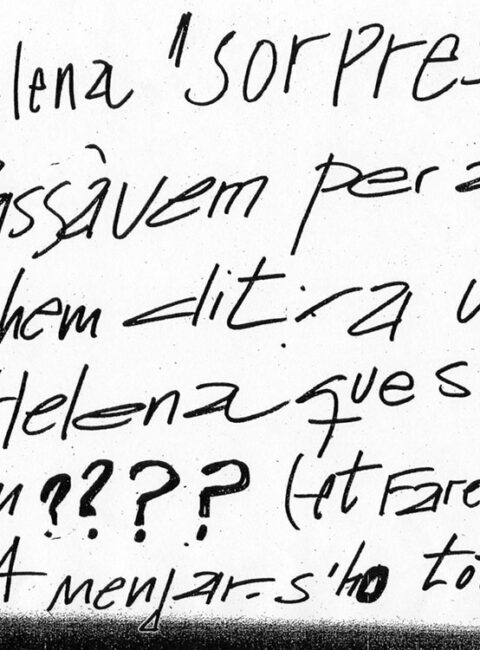 lena "sorpres
assàvem per a
hem dit: ra v
Helena que s
u ???? (-et Fare
A menjar-s'ho to